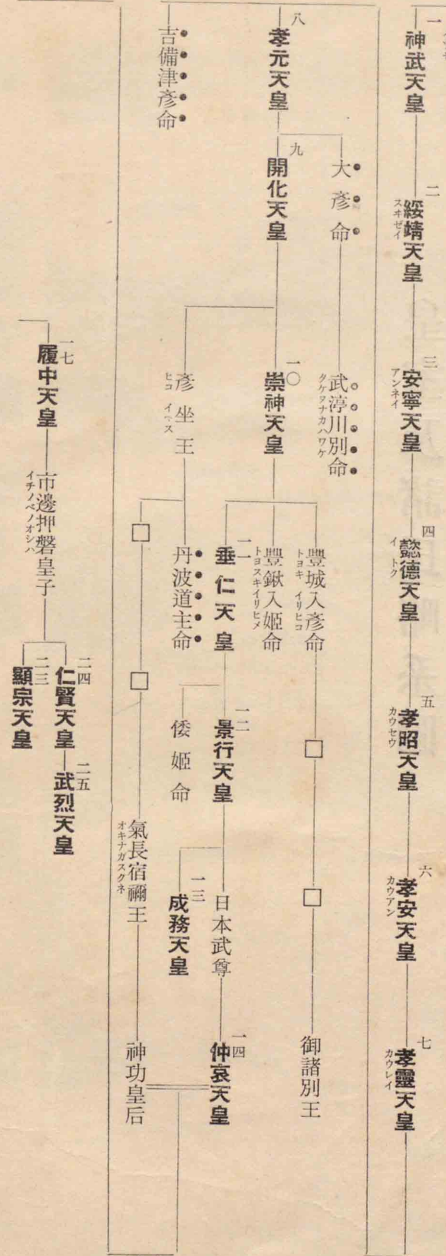 一
神武天皇
二
綏靖天皇
スヰゼイ
三
安寧天皇
アンネイ
四
懿德天皇
イトク
五
孝昭天皇
カウセウ
六
孝安天皇
カウアン
七
孝靈天皇
カウレイ
八
孝元天皇
吉備津彥命
大彥命
九
開化天皇
武渟川別命
タケヌナカハワケ
一〇
崇神天皇
彥坐王
ヒコイマス
豐城入彥命
トヨキイリヒコ
豐鍬入姬命
トヨスキイリヒメ
一一
垂仁天皇
丹波道主命
御諸別王
一二
景行天皇
倭姬命
日本武尊
一三
成務天皇
一四
仲哀天皇
氣長宿禰王
オキナガスクネ
神功皇后
一七
履中天皇
市邊押磐皇子
イチノベノオシハ
二四
仁賢天皇
二五
武烈天皇
二三
顯宗天皇